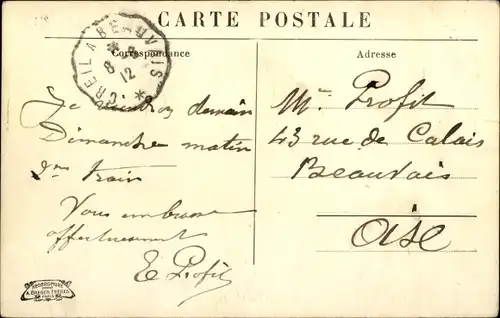 CARTE POSTALE
Correspondance
Adresse
CREIL A BEAUVAIS
8
12
Je viendrai demain
Dimanche matin
2me train
Vous embrasse
affectueusement
E Profit
Mr. Profit
43 rue de Calais
Beauvais
Oise
A. BREGER FRÈRES
PARIS